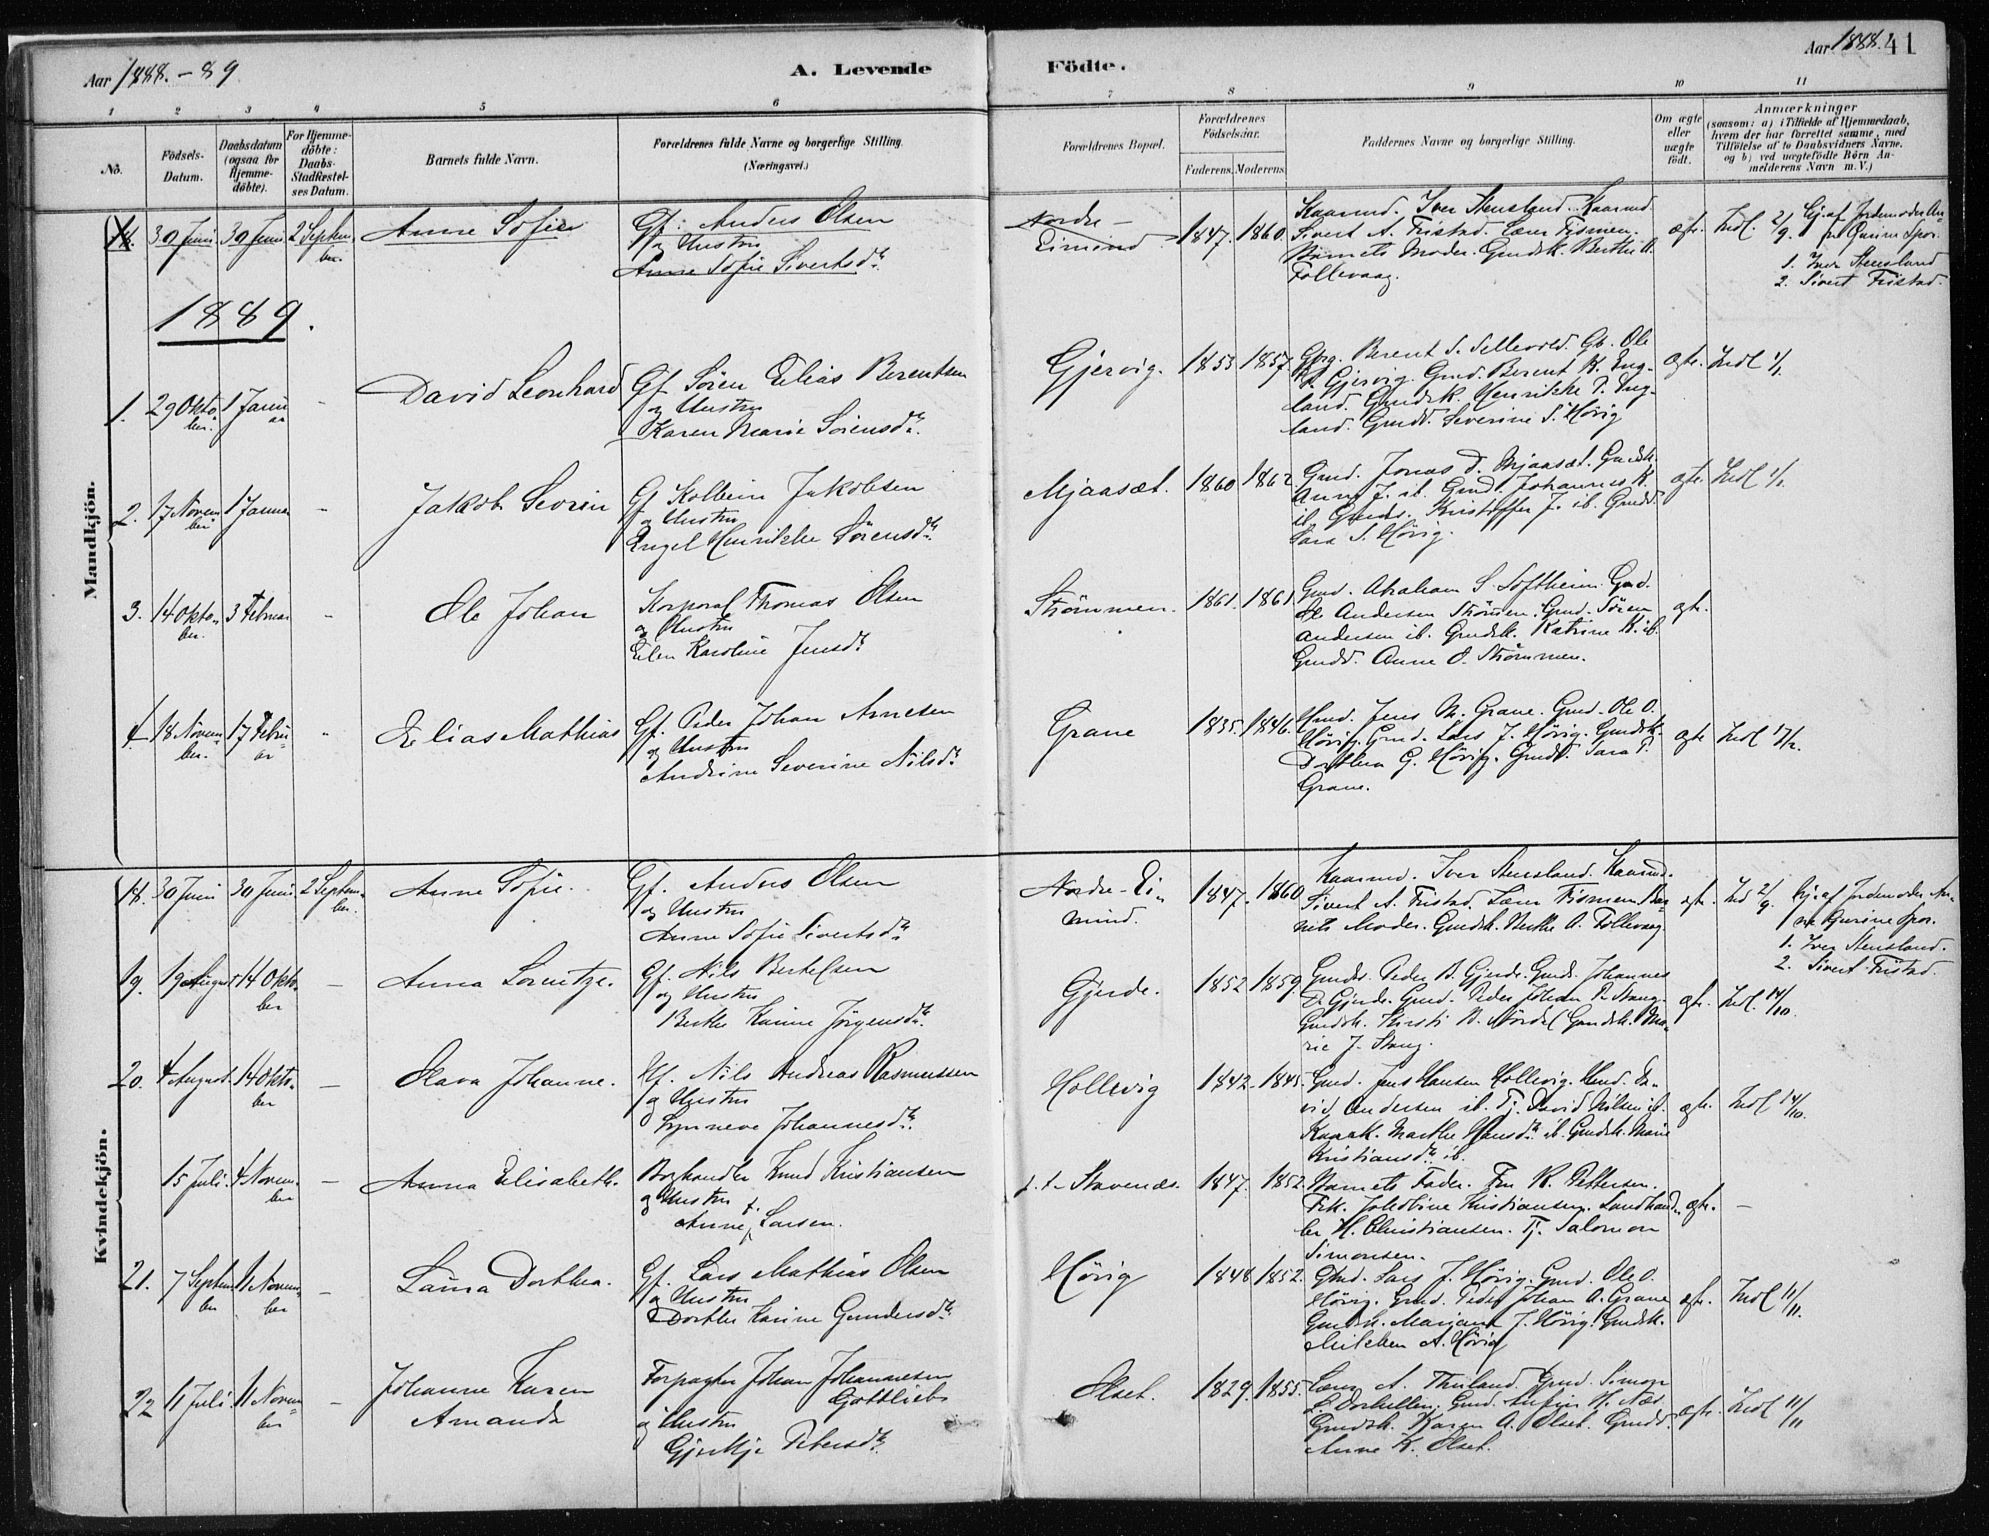 Aar 1888.-89
A. Levende
Födte.
Aar 1888. 41
1 2 3 4 5 6 7 8 9 10 11
No.
Födsels-Datum.
Daabsdatum (ogsaa for Hjemme-döbte).
For Hjemme-döbte: Daabs-Stadfæstel-ses Datum.
Barnets fulde Navn.
Forældrenes fulde Navne og borgerlige Stilling.
(Næringsvei.)
Forældrenes Bopæl.
Forældrenes Födselsaar.
Faderens. Moderens.
Faddernes Navne og borgerlige Stilling.
Om ægte eller uægte födt.
Anmærkninger
(saasom: a) i Tilfælde af Hjemmedaab,
hvem der har forrettet samme, med
Tilföielse af to Daabsvidners Navne.
og b) ved uægtefödte Börn An-
melderens Navn m. V.)
Mandkjön.
18. 30 Juni 30 Juni 2 Septem-
ber.
Anne Sofie
Gf. Anders Olsen
og Hustru
Anne Sofie Sivertsdtr.
Nordre-
Eimind
1847. 1860.
Kaarmd. Iver Stensland. Kaarmd.
Sivert A. Fristad. Lærer Tismen.
Barnets Moder. Gmdsk. Berthe A.
Follevaag.
ægte. Indl. 2/9.
Gj. af Jordemoder An-
ne Gurine Spor.
1. Iver Stensland
2. Sivert Fristad.
1889.
1. 29 Okto-
ber. 1 Janu-
ar
-
David Leonhard
Gf. Sören Elias Berentsen
og Hustru
Karen Marie Sörensdtr.
Gjervig.
1853 1857.
Gbrg. Berent S. Sellevold. Gb. Ole
R. Gjervig. Gmd. Berent K. Eng-
land. Gmdsk. Henrikke P. Eng-
land. Gmdd. Severine S. Hövig
ægte. Indl 1/1.
2. 17 Novem-
ber 1 Januar
-
Jakob Severin
Gf Kolbein Jakobsen
og Hustru
Engel Henrikke Sörensdtr.
Mjaasæt.
1860 1862
Gmd. Jonas D. Mjaasæt. Gmdsk.
Anne J. ib. Gmd. Johannes K.
ib. Gmds. Kristoffer J. ib. Gmdd.
Sara S. Hövig.
ægte. Indl 1/1.
3. 14 Okto-
ber. 3 Februar
-
Ole Johan
Korporal Thomas Olsen
og Hustru
Elen Karoline Jensdtr
Strömmen.
1861. 1861.
Gmd. Abraham S. Softheim. Gmd.
Ole Andersen Strömmen. Gmd. Sören
Andersen ib. Gmdsk. Katrine K. ib.
Gmdd. Anne O. Strömmen.
ægte.
4. 18 Novem-
ber. 17 Febru-
ar
-
Elias Mathias
Gf. Peder Johan Arnesen
og Hustru
Andrine Severine Nilsdtr.
Grane
1835. 1846.
Gmd. Jens N. Grane. Gmd. Ole O.
Hövig. Gmd. Lars J. Hövig. Gmdsk.
Dorthea G. Hövig. Gmdd. Sara P.
Grane.
ægte Indl 17/2.
Kvindekjön.
18. 30 Juni 30 Juni 2 Septem-
ber.
Anne Sofie.
Gf. Anders Olsen
og Hustru
Anne Sofie Sivertsdtr.
Nordre-Ei-
mind.
1847. 1860
Kaarmd. Iver Stensland. Kaarmd.
Sivert A. Fristad. Lærer Tismen. Bar-
nets Moder. Gmdsk. Berthe A. Follevaag
ægte. Indl 2/9.
Gj. af Jordemoder An-
ne Gurine Spor.
1. Iver Stensland.
2. Sivert Fristad.
19. 19 August 14 Okto-
ber
-
Anna Lorentze.
Gf. Nils Bertelsen
og Hustru
Berthe Karine Jörgensdtr.
Gjerde.
1852 1859.
Gmds. Peder B. Gjerde. Gmds. Johannes
D. Gjerde. Gmd. Peder Johan P. Stang.
Gmdsk. Kirsti B. Gmdsk. Ma-
rie J. Stang.
ægte. Indl. 14/10.
20. 4 August. 14 Okto-
ber
-
Olava Johanne.
Hf. Nils Andreas Rasmussen
og Hustru
Synneve Johannesdtr.
Hollevig
1842- 1845.
Gmd. Jens Hansen Hollevig. Hmd. Da-
vid Andersen ib. Tj. David Nilsen ib.
Kaark. Marthe Hansdtr. ib. Gmdsk. Marie
Kristiansdtr. ib.
ægte. Indl 14/10.
15 Juli. 4 Novem-
ber
-
Anna Elisabeth.
Boghandler Knud Kristiansen
og Hustru
Anne f. Larsen.
p. t. Stavenæs.
1847. 1852.
Barnets Fader. Fru R. Pettersen.
Frk. Kristiansen. Landhand-
ler H. Christiansen. Tj. Salomon
Simonsen.
ægte. -
21. 7 Septem-
ber 11 Novem-
ber
-
Laura Dorthea.
Gf. Lars Mathias Olsen
og Hustru
Dorthe Karine Gundersdtr.
Hövig
1848 1852.
Gmd. Lars J. Hövig. Gmd. Ole O.
Hövig. Gmd. Peder Johan A. Grane
Gmdsk. Mariane J. Hövig. Gmdsk.
A. Hövig
ægte. Indl 11/11.
22 11 Juli. 11 Novem-
ber
-
Johanne Karen
Amanda
Forpagter Johan Johannesen
Gottlieb
og Hustru
Gjertje Petersdtr.
Olset.
1829. 1855.
Lærer A. Thuland. Gmd. Simon
L. Gmd. H. Næs.
Gmdsk. Karen A. Olset. Gmdd.
Anne K. Olset.
ægte. Indl 11/11